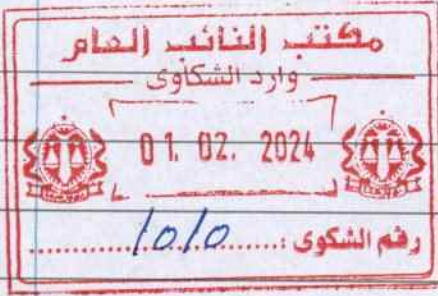 مكتب النائب العام
وارد الشكاوى
01. 02. 2024
رقم الشكوى :.......1010.......